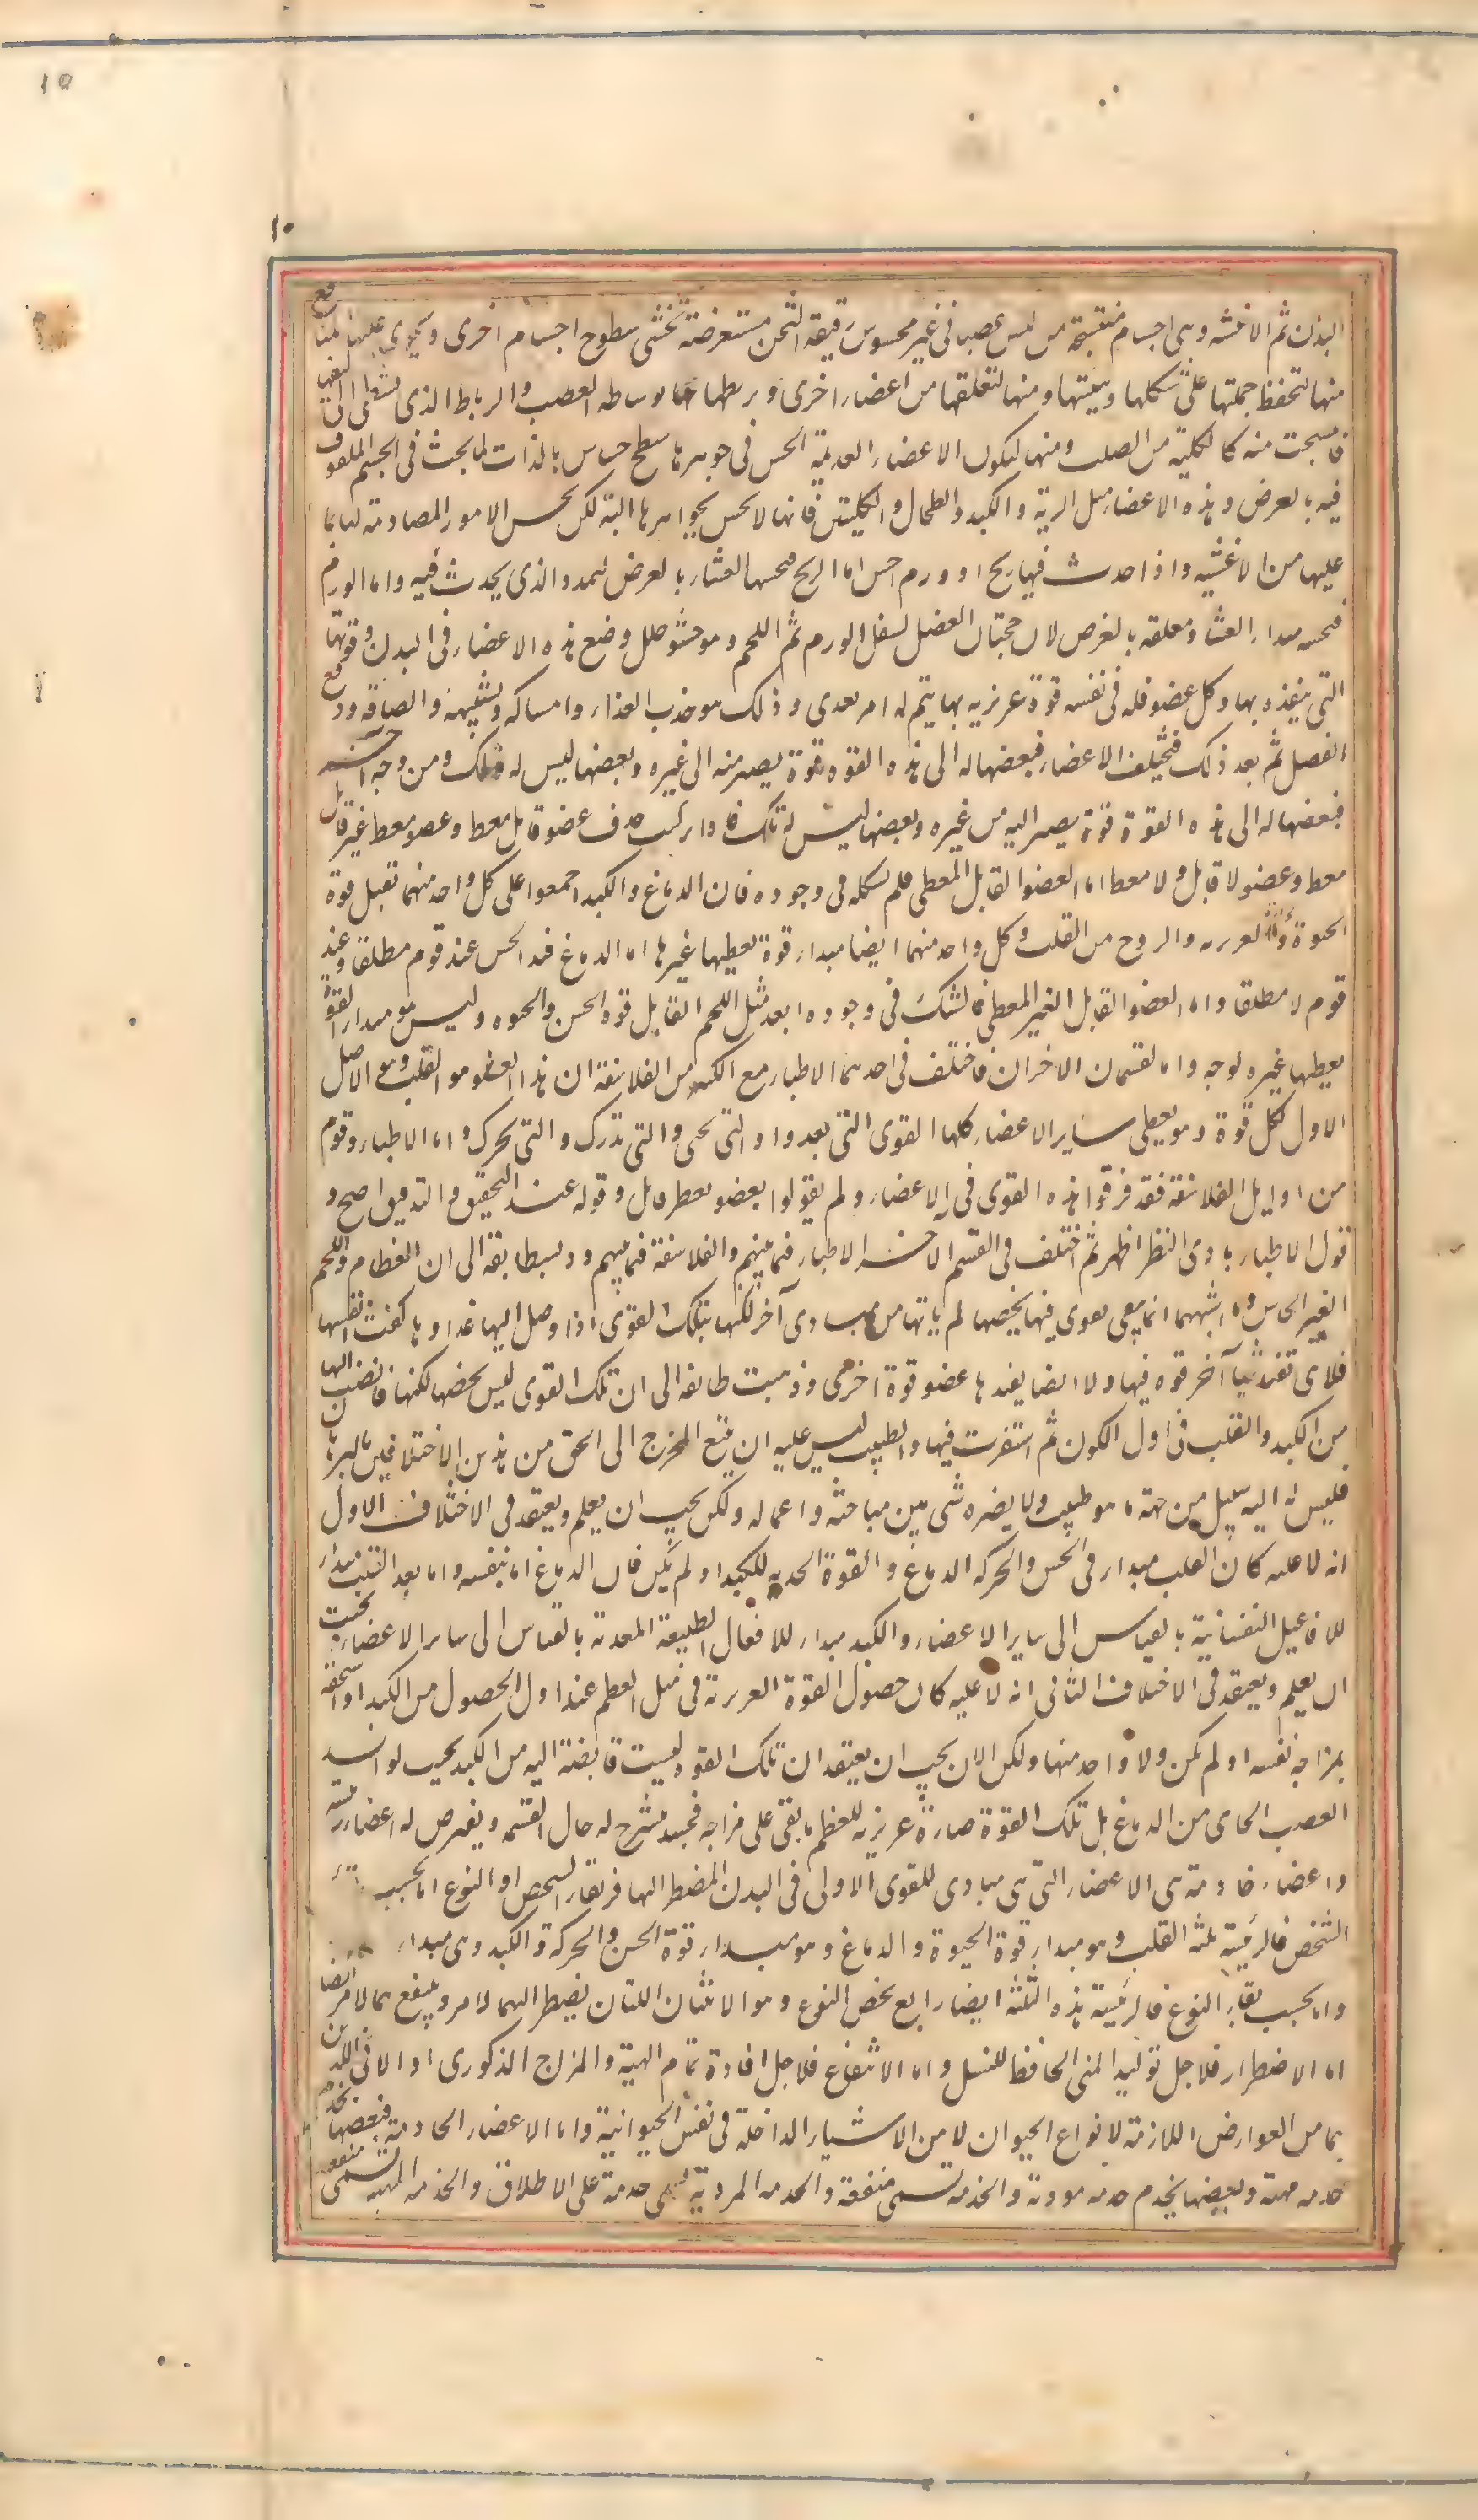 ١٥
١٠
البدن ثم الاغشيه وهى اجسام منتسجة من ليس عصبانى غير محسوس رقيقة الثخن مستعرضة تغشى سطوح اجسام اخرى ويحوى عليها منافع
منها لتحفظ جملتها على شكلها وهيئتها ومنها لتعلقها من اعضاء اخرى وبربطها بها بوساطه العصب والرباط الذى تشظى الى ليفها
فانتسجت منه كالكلية من الصلب ومنها ليكون الاعضاء العديمة الحس فى جوهرها سطح حساس بالذات لما يحدث فى الجسم الملفوف
فيه بالعرض وهذه الاعضاء مثل الرية والكبد والطحال والكليتين فانها لا تحس بجواهرها البتة لكن تحس الامور المصادمة لها بما
عليها من الاغشيه واذا حدث فيها ريح او ورم احس اما الريح فيحسها الغشاء بالعرض للتمدد الذى يحدث فيه واما الورم
فيحسه مبداء الغشاء ومعلقه بالعرض لان حجبتان العضل لسفل الورم ثم اللحم وهو حشو خلل وضع هذه الاعضاء فى البدن وقوتها
التى ينفذه بها وكل عضو فله فى نفسه قوة غريزيه بها يتم له امر تغدى وذلك هو جذب الغذاء وامساكه وتشبيهه والصاقه ودفع
الفضل ثم بعد ذلك فتختلف الاعضاء فبعضها له الى هذه القوه قوة يصير منه الى غيره وبعضها ليس له ذلك ومن وجه اخر
فبعضها له الى هذه القوة قوة يصير اليه من غيره وبعضها ليس له تلك فاذا ركبت حدث عضو قابل معط وعضو معط غير قابل
معط وعضو لا قابل ولا معط اما العضو القابل المعطى فلم يشك فى وجوده فان الدماغ والكبد اجمعوا على كل واحد منهما تقبل قوة
الحيوة والحرارة الغريزيه والروح من القلب وكل واحد منهما ايضا مبداء قوة يعطيها غيرها اما الدماغ فمبدا الحس عند قوم مطلقا وعند
قوم لا مطلقا واما العضو القابل الغير المعطى فالشك فى وجوده ابعد مثل اللحم القابل قوة الحس والحيوه وليس هو مبداء القوة
يعطيها غيره لوجه واما القسمان الاخران فاختلف فى احدهما الاطباء مع الكبير من الفلاسفة ان هذا العضو هو القلب وهو الاصل
الاول لكل قوة وهو يعطى ساير الاعضاء كلها القوى التى بعدوا والتى تحيى والتى تدرك والتى تحرك واما الاطباء وقوم
من اوايل الفلاسفة فقد فرقوا هذه القوى فى الاعضاء ولم يقولوا بعضو معط غير قابل وقوله عند التحقيق والتدقيق اصح و
قول الاطباء بادى النظر اظهر ثم اختلف فى القسم الاخر الاطباء فيما بينهم والفلاسفة فيما بينهم وذهب طايفة الى ان العظام واللحم
الغير الحاس وما اشبههما انما يبقى بقوى فيها يخصها لم ياتها من مبادى آخر لكنها بتلك القوى اذا وصل اليها غداوها كفت انفسها
فلا هى تفيد شيا آخر قوه فيها ولا ايضا يفيدها عضو قوة اخرى وذهبت طايفه الى ان تلك القوى ليس يخصها لكنها فايضة اليها
من الكبد والقلب فى اول الكون ثم استقرت فيها والطبيب ليس عليه ان يتبع المخرج الى الحق من هذين الاختلافين بالبرهان
فليس له اليه سبيل من جهة ما هو طبيب ولا يضره شى من مباحثه واعماله ولكن يجب ان يعلم ويعتقد فى الاختلاف الاول
انه لا عليه كان القلب مبداء فى الحس والحركه الدماغ والقوة المغديه للكبد او لم يكن فان الدماغ اما بنفسه واما بعد القلب مبداء
للافاعيل النفسانية بالقياس الى ساير الاعضاء والكبد مبداء للافعال الطبيعة المغدية بالقياس الى ساير الاعضاء ويجب
ان يعلم ويعتقد فى الاختلاف الثانى انه لا عليه كان حصول القوة الغريزية فى مثل العظم عند اول الحصول من الكبد او استحقه
بمزاجه نفسه او لم يكن ولا واحد منها ولكن الان يجب ان يعتقد ان تلك القوه ليست فايضة اليه من الكبد بحيث لو انسد
العصب الحاى من الدماغ بل تلك القوة صارة غريزيه للعظم ما بقى على مزاجه فحينئذ يشرح له حال القسمه ويفرض له اعضاء رئيسه
واعضاء خادمة هى الاعضاء التى هى مبادى للقوى الاولى فى البدن المضطر اليها فى بقاء الشخص او النوع اما بحسب
الشخص فالرئيسة ثلثه القلب وهو مبداء قوة الحيوة والدماغ وهو مبداء قوة الحس والحركة والكبد وهى مبداء
واما بحسب بقاء النوع فالرئيسة هذه الثلثة ايضا رابع يخص النوع وهو الانثيان اللتان يضطر اليهما لامر وينتفع بهما لامر ايضا
اما الاضطرار فلاجل توليد المنى الحافظ للنسل واما الانتفاع فلاجل افادة تمام الهيئة والمزاج الذكورى او الانثى اللذين
هما من العوارض اللازمة لانواع الحيوان لا من الاشياء الداخلة فى نفس الحيوانية واما الاعضاء الخادمة فبعضها يخدم
خدمه مهيئة وبعضها يخدم خدمه مودية والخدمة تسمى منفعة والخدمه المودية تسمى خدمة على الاطلاق والخدمه المهيئه تسمى منفعة